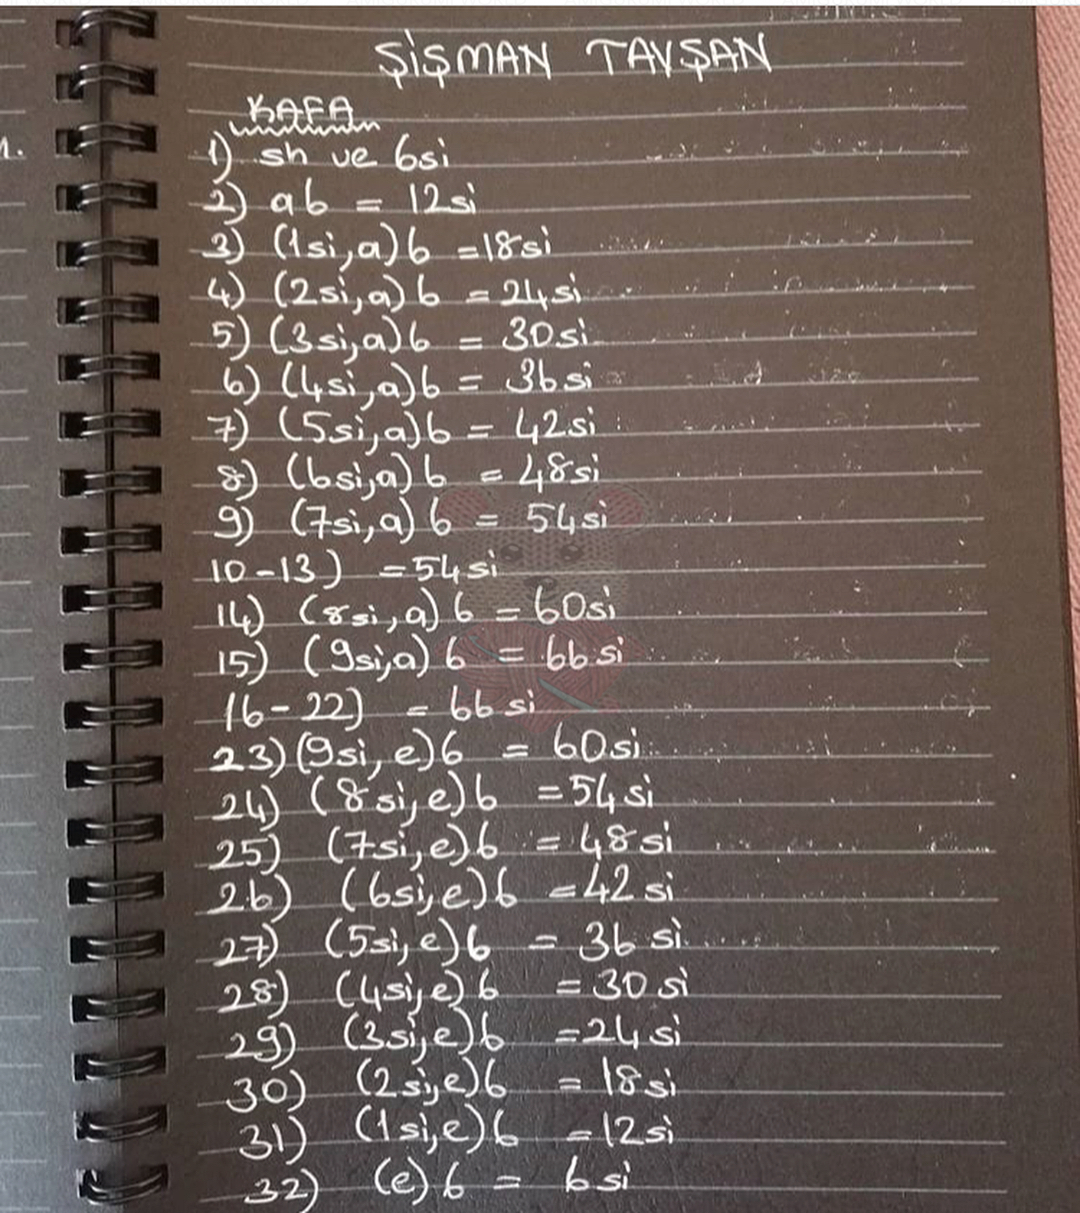 ŞİŞMAN TAVŞAN
KAFA
1) sh ve 6si
2) a6 = 12si
3) (1si,a)6 =18si
4) (2si,a)6 =24si
5) (3si,a)6 = 30si
6) (4si,a)6 = 36si
7) (5si,a)6 = 42si
8) (6si,a)6 = 48si
9) (7si,a)6 = 54si
10-13) =54si
14) (8si,a)6 =60si
15) (9si,a)6 = 66si
16-22) = 66si
23)(9si,e)6 = 60si
24) (8si,e)6 =54si
25) (7si,e)6 = 48si
26) (6si,e)6 =42si
27) (5si,e)6 = 36si
28) (4si,e)6 =30si
29) (3si,e)6 =24si
30) (2si,e)6 = 18si
31) (1si,e)6 =12si
32) (e)6 = 6si